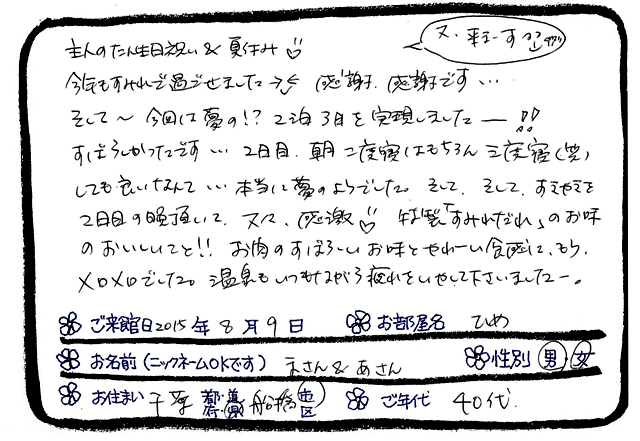 又、来まーす!!
主人のたん生日祝い & 夏休み
今年もすみれで過ごせましたー 感謝、感謝です…
そして〜今回は夢の!? 2泊3日を実現しましたー!!
すばらしかったです… 2日目、朝、二度寝はもちろん三度寝(笑)
しても良いなんて…本当に夢のようでした。そして、そして、すきやきを
2日目の晩頂いて、又々、感激 特製「すみれだれ」のお味
のおいしいこと!! お肉のすばらしいお味とやわらーい食感に、もう、
メロメロでした。温泉もいつもながら疲れをいやして下さいましたー。
ご来館日2015年8月9日 お部屋名 ひめ
お名前(ニックネームOKです) まさん&あさん 性別 男・女
お住まい 千葉 都・道・府・県 船橋 市・区 ご年代 40代.